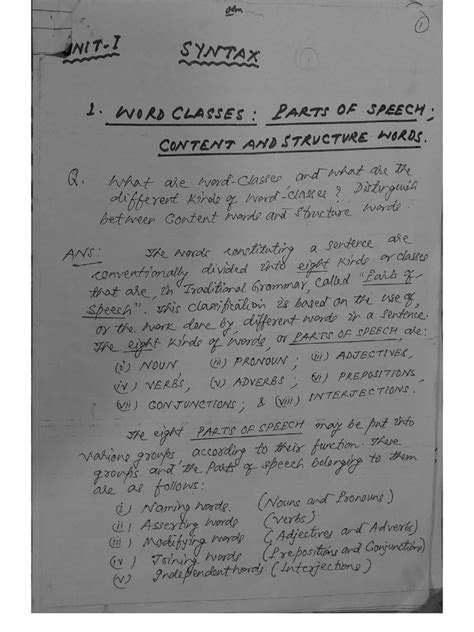 1
UNIT-I SYNTAX
1. WORD CLASSES: PARTS OF SPEECH;
CONTENT AND STRUCTURE WORDS.
Q. What are Word-Classes, and what are the
different kinds of Word-Classes? Distinguish
between Content Words and Structure Words.
ANS: The words constituting a sentence are
conventionally divided into eight kinds or classes
that are, in Traditional Grammar, called "Parts of
Speech". This classification is based on the use of,
or the work done by, different words in a sentence.
The eight kinds of words, or PARTS OF SPEECH, are:
(i) NOUN, (ii) PRONOUN; (iii) ADJECTIVES,
(iv) VERBS, (v) ADVERBS; (vi) PREPOSITIONS,
(vii) CONJUNCTIONS; & (viii) INTERJECTIONS.
The eight PARTS OF SPEECH may be put into
various groups according to their function. These
groups and the Parts of speech belonging to them
are as follows:
(i) Naming words. (Nouns and Pronouns)
(ii) Asserting words (Verbs)
(iii) Modifying words (Adjectives and Adverbs)
(iv) Joining words (Prepositions and Conjunctions)
(v) Independent words (Interjections)